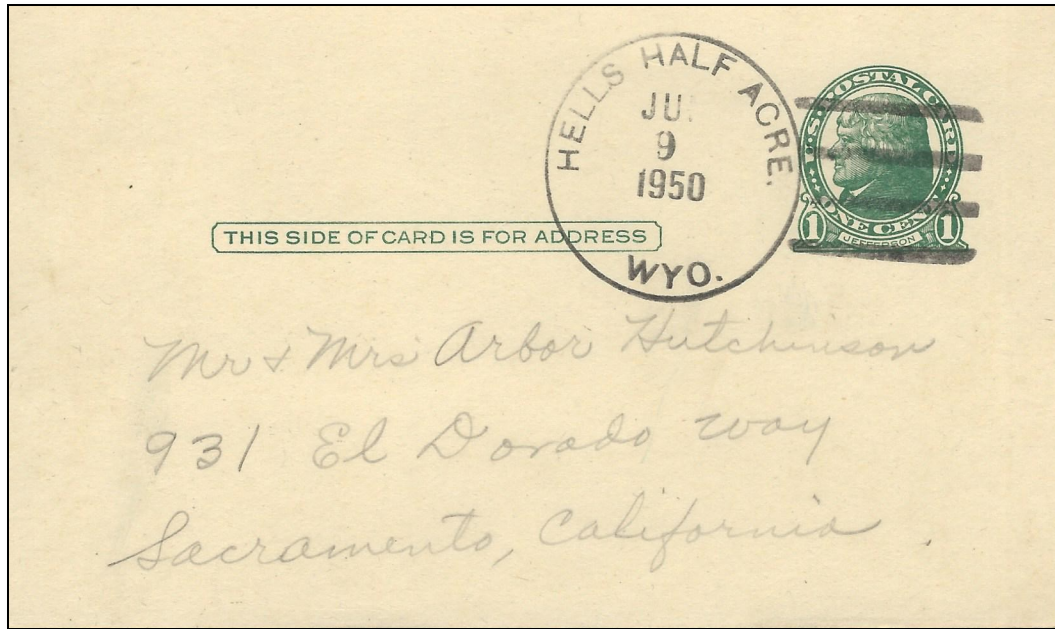 HELLS HALF ACRE.
9
1950
WYO.
U.S. POSTAL CARD
ONE CENT
1 JEFFERSON 1
THIS SIDE OF CARD IS FOR ADDRESS
Mr & Mrs Arbor Hutchinson
931 El Dorado Way
Sacramento, California